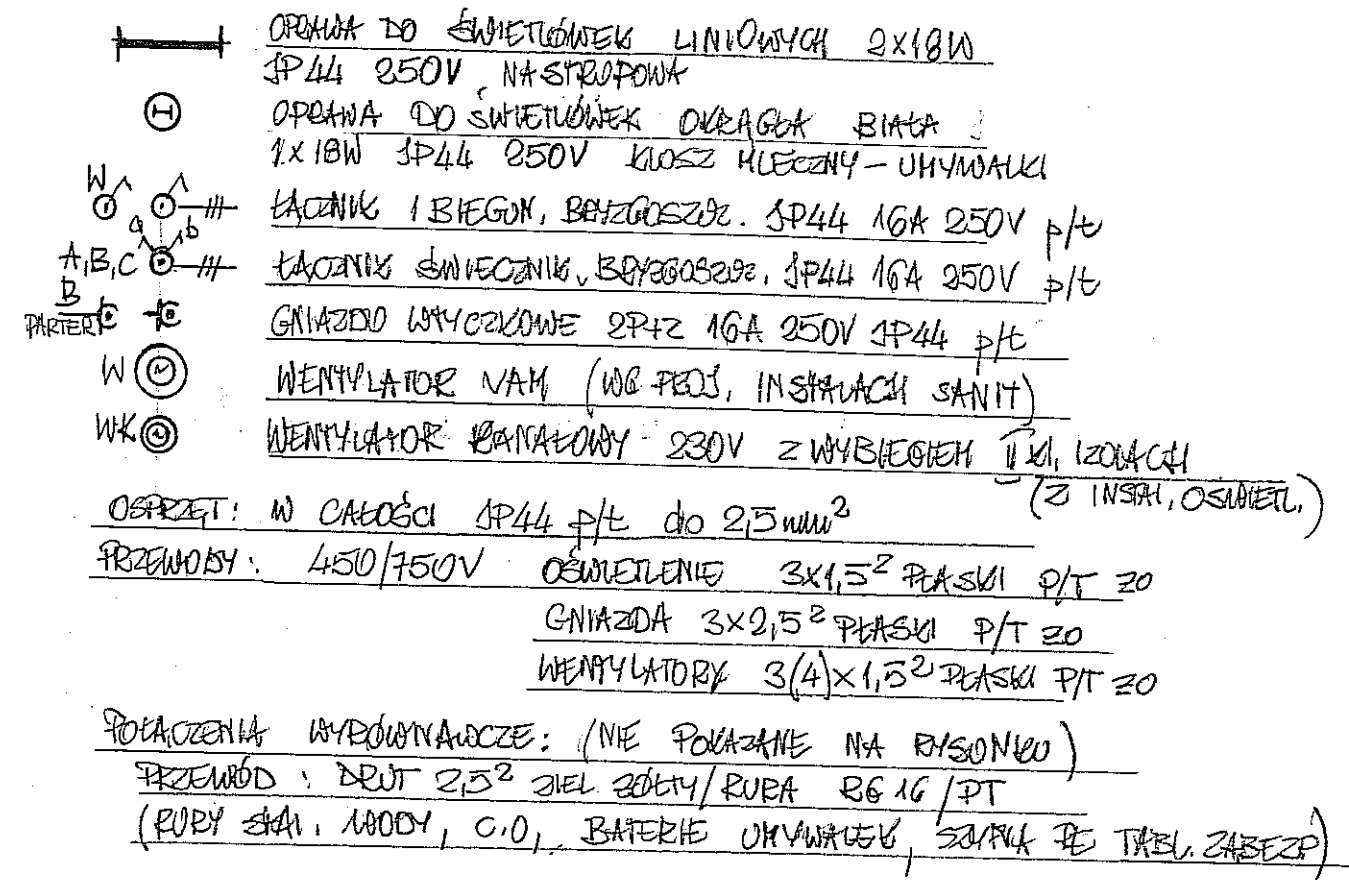 OPRAWA DO ŚWIETLÓWEK LINIOWYCH 2x18W
IP44 250V, NASTROPOWA
OPRAWA DO ŚWIETLÓWEK OKRĄGŁA BIAŁA
1x18W IP44 250V KLOSZ MLECZNY – UMYWALKI
W ŁĄCZNIK 1 BIEGUN, BRYZGOSZCZ. IP44 16A 250V p/t
a b
A,B,C ŁĄCZNIK ŚWIECZNIK, BRYZGOSZCZ. IP44 16A 250V p/t
B
PARTER GNIAZDO WTYCZKOWE 2P+Z 16A 250V IP44 p/t
W WENTYLATOR NAM (WG PROJ. INSTALACJI SANIT)
WK WENTYLATOR KANAŁOWY 230V Z WYBIEGIEM II KL, IZOLACJI
(Z INSTAL, OŚWIETL.)
OSPRZĘT: W CAŁOŚCI IP44 p/t do 2,5mm²
PRZEWODY: 450/750V OŚWIETLENIE 3x1,5² PŁASKI P/T ŻO
GNIAZDA 3x2,5² PŁASKI P/T ŻO
WENTYLATORY 3(4)x1,5² PŁASKI P/T ŻO
POŁĄCZENIA WYRÓWNAWCZE: (NIE POKAZANE NA RYSUNKU)
PRZEWÓD: DRUT 2,5² ZIEL ŻÓŁTY/RURA RG 16/PT
(RURY STAL. WODY, C.O, BATERIE UMYWALEK, SZYNA PE TABL. ZABEZP)